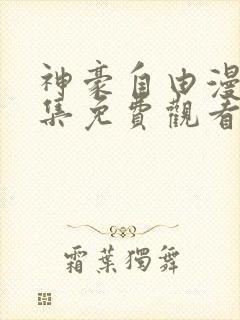 神豪自由漫
集免費觀看
霜葉獨舞